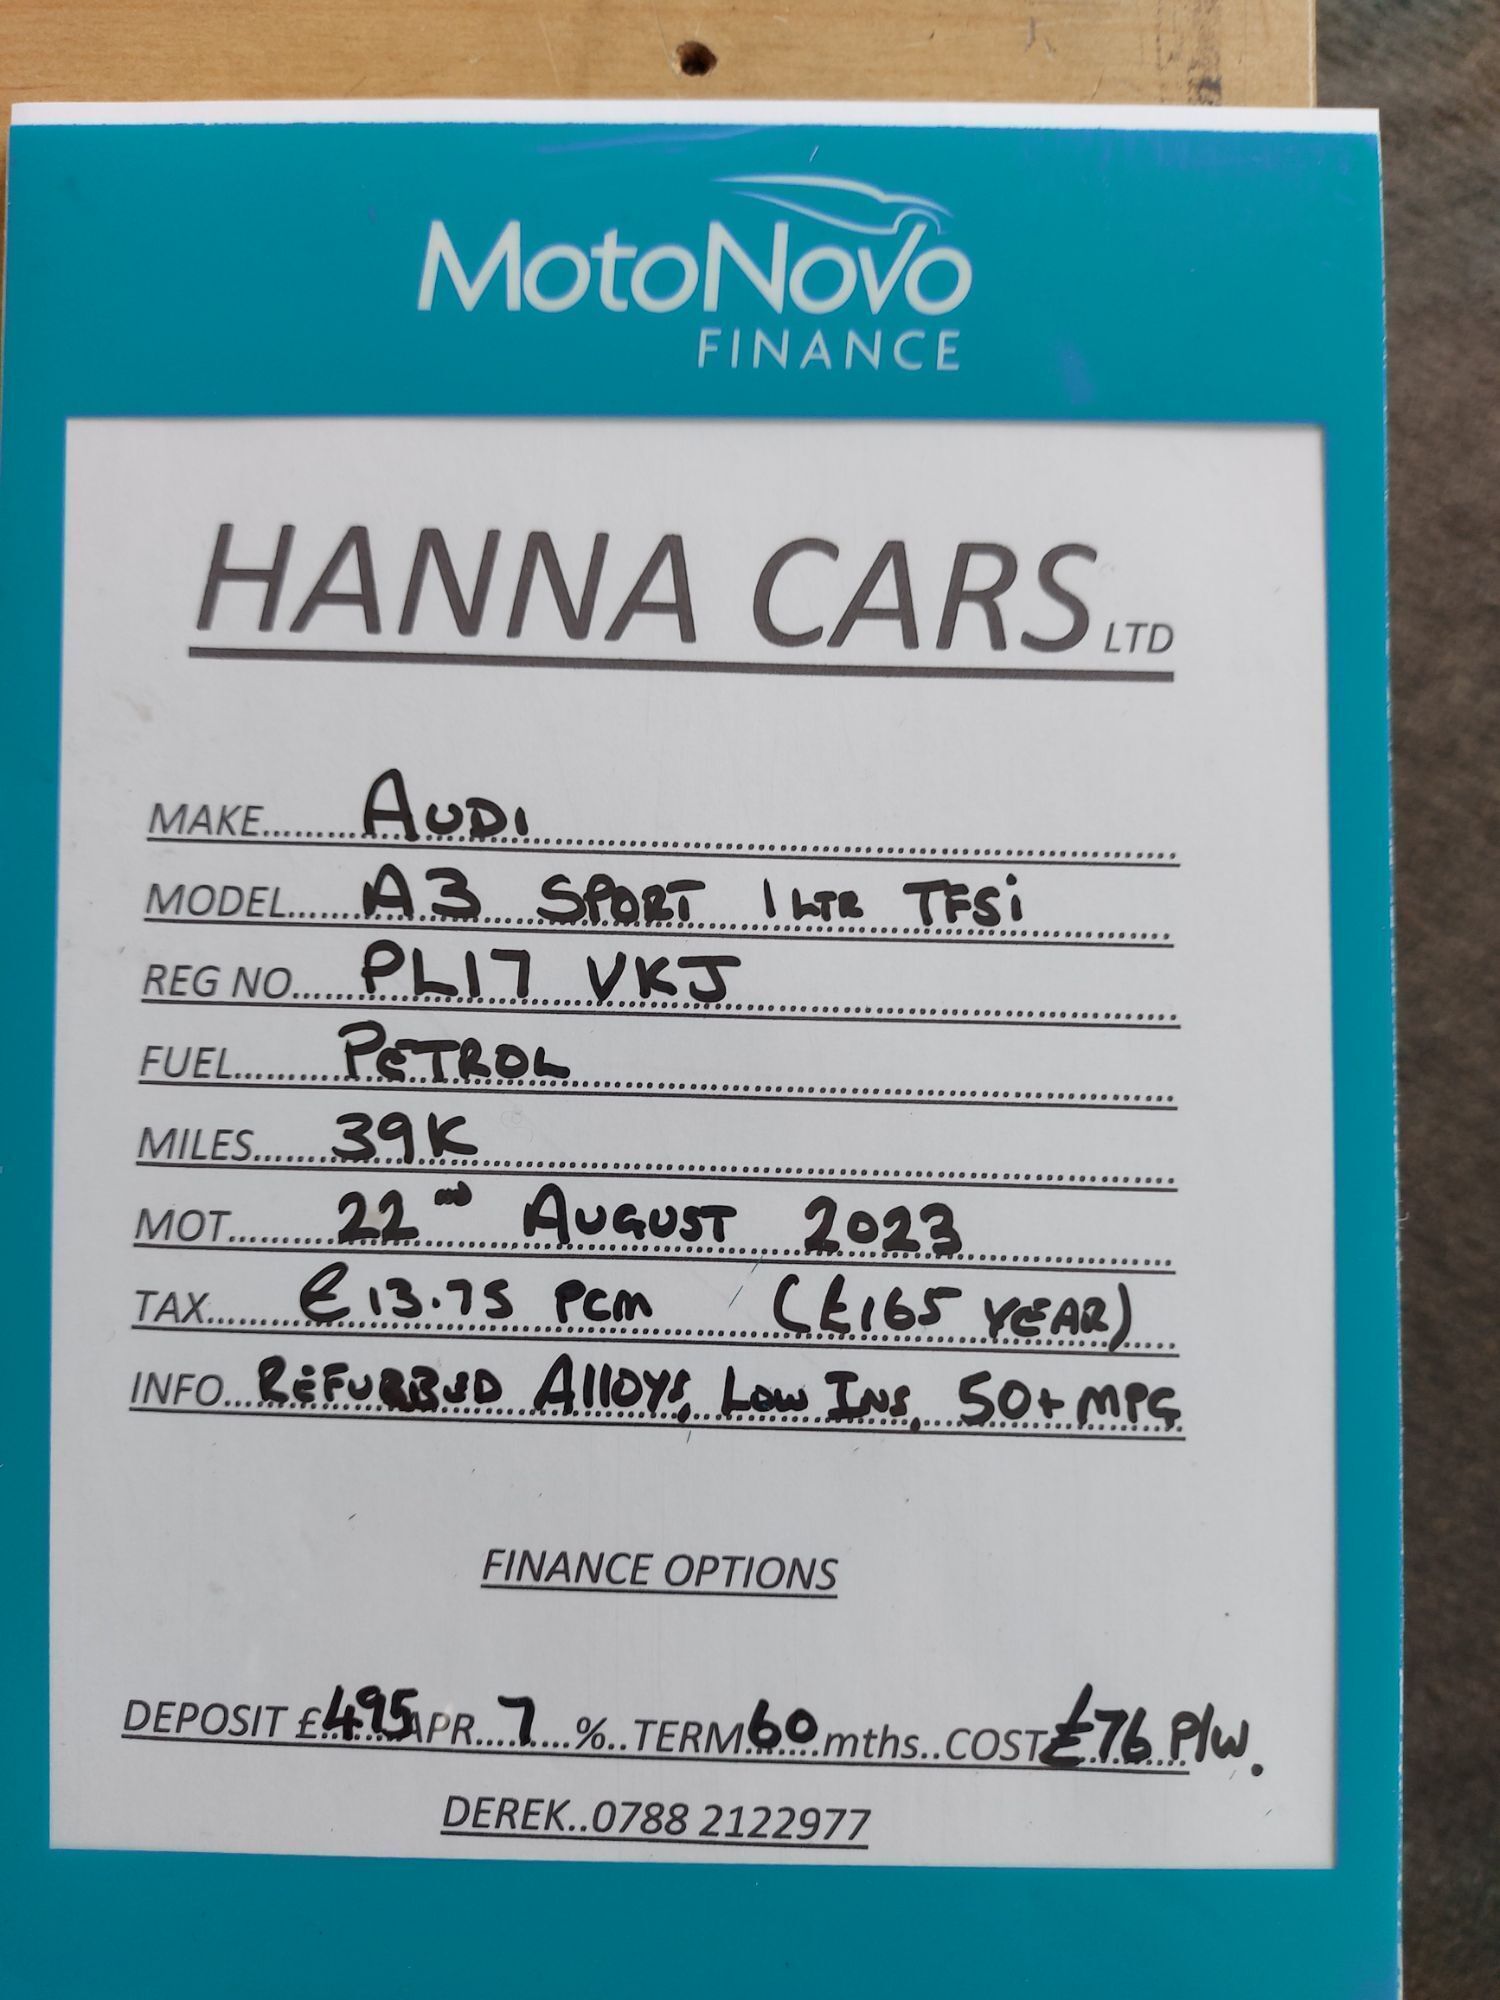 MotoNovo
FINANCE
HANNA CARS LTD
MAKE......... AUDI
MODEL...... A3 SPORT 1 LTR TFSi
REG NO...... PL17 VKJ
FUEL......... PETROL
MILES...... 39K
MOT......... 22nd AUGUST 2023
TAX......... £13.75 PCM (£165 YEAR)
INFO... REFURBUD Alloys, Low INS, 50+ MPG
FINANCE OPTIONS
DEPOSIT £495 APR....7....%..TERM 60 mths..COST £76 P/W.
DEREK..0788 2122977